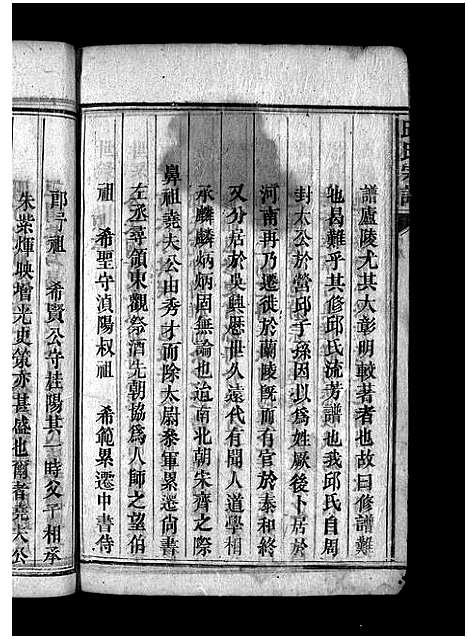 譜廬陵尤其大彰明較著者也故曰修譜難
也曷難乎其修邱氏流芳譜也我邱氏自周
封太公於營邱子孫因以為姓厥後卜居於
河南再乃遷徙於蘭陵既而有官於泰和終
又分居於吳興歷世久遠代有聞人道學相
承麟麟炳炳固無論也迨南北朝宋齊之際
鼻祖堯夫公由秀才而除太尉參軍累迁尚書
左丞尋領東觀祭酒先朝協為人師之望伯
祖 希聖守滇陽叔祖 希範累遷中書侍
郎予祖 希賢公守桂陽其一時父子相承
朱紫煇映增光史策亦甚盛也爾者堯夫公